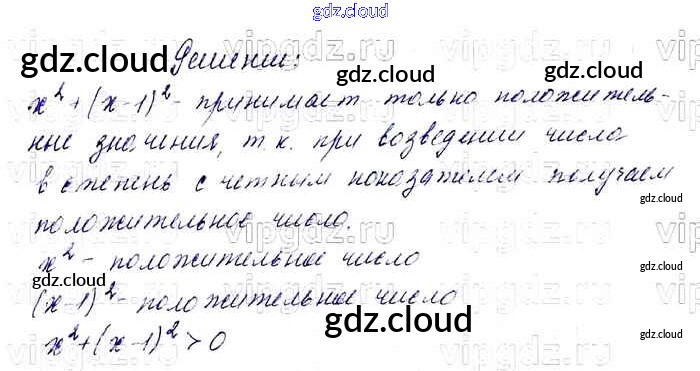 gdz.cloud
vipgdz.ru
gdz.cloud Решение: gdz.cloud
x² + (x-1)² - принимает только положитель-
ные значения, т.к. при возведении числа
в степень с четным показателем получаем
положительное число.
x² - положительное число
(x-1)² - положительное число
x² + (x-1)² > 0
gdz.cloud
gdz.cloud
gdz.cloud
gdz.cloud
gdz.cloud
gdz.cloud
gdz.cloud